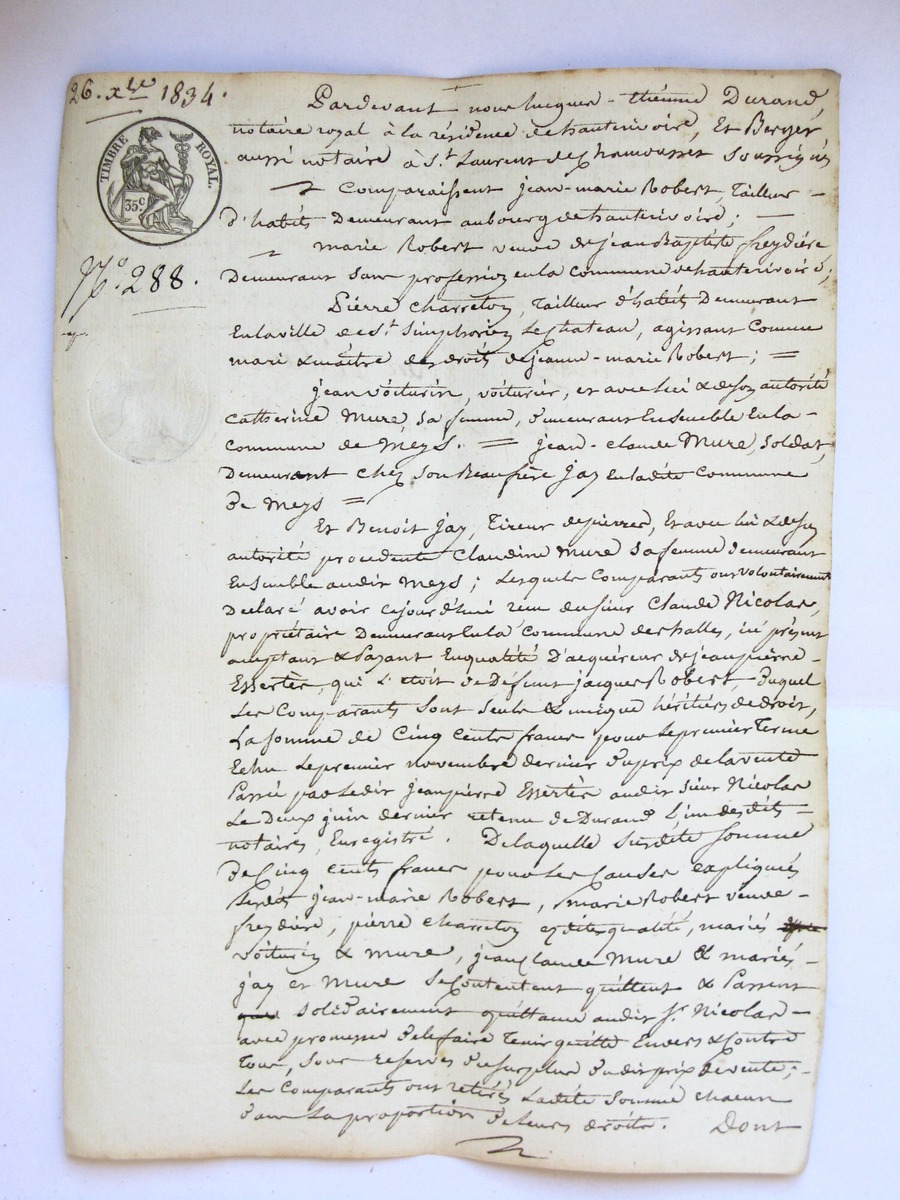 26. xbre 1834.
TIMBRE ROYAL.
35c
No. 288.
Pardevant nous hugues-thiénne Durand
notaire royal à la résidence de hauterivoire, Et Berger
aussi notaire à St. Laurent de Chamousset Soussignés
Comparaissent jean-marie Robert, Tailleur
d'habits Demeurant au bourg de hauterivoire;
marie Robert veuve de jean Baptiste freydière
Demeurant Sans profession en la Commune de hauterivoire;
Pierre Charreton, Tailleur d'habits Demeurant
En la ville de St. Simphorien le chateau, agissant Comme
mari & maître des droits de jeanne-marie Robert; =
jean voiturin, voiturier, et avec lui & de son autorité
Catherine Mure, sa femme, Demeurant Ensemble En la
Commune de Meys. = jean-Claude Mure, Soldat,
Demeurant chez Son Beaufrère Jay En ladite Commune
de Meys =
Et Benoit Jay, Tireur de pierres, Et avec lui & de son
autorité procedente Claudine Mure Sa femme Demeurant
Ensemble audit Meys; Lesquels Comparants ont volontairement
Déclaré avoir cejourd'hui reçu du sieur Claude Nicolas,
propriétaire Demeurant En la Commune des halles, ici présent
acceptant & Payant En qualité D'acquéreur de jean pierre
Essertès, qui L'etoit de Défunt jacques Robert, Duquel
Les Comparants Sont Seuls & unique héritiers de droit,
La Somme de Cinq Cents francs pour Le premier Terme
Echu Le premier novembre dernier du prix de la vente
Passée par Ledit jean pierre Essertès audit Sieur Nicolas
Le Deux juin dernier retenu de Durand L'un desdits
notaires, Enregistré. De laquelle Susdite Somme
de Cinq cents francs pour Les Causes expliqués
Lesdits jean-marie Robert, marie Robert veuve
freydière, pierre charreton es dites qualité, mariés
voiturin & mure, jean Claude Mure & mariés
jay et Mure Se Contentent quittent & Passent
Solidairement quittance audit Sr. Nicolas
avec promesse de le faire Tenir quitte Envers & Contre
Tous, Sous reserves du surplus dudit prix de vente;
Les Comparants ont retirés Ladite Somme chacun
dans La proportion de leurs droits. Dont